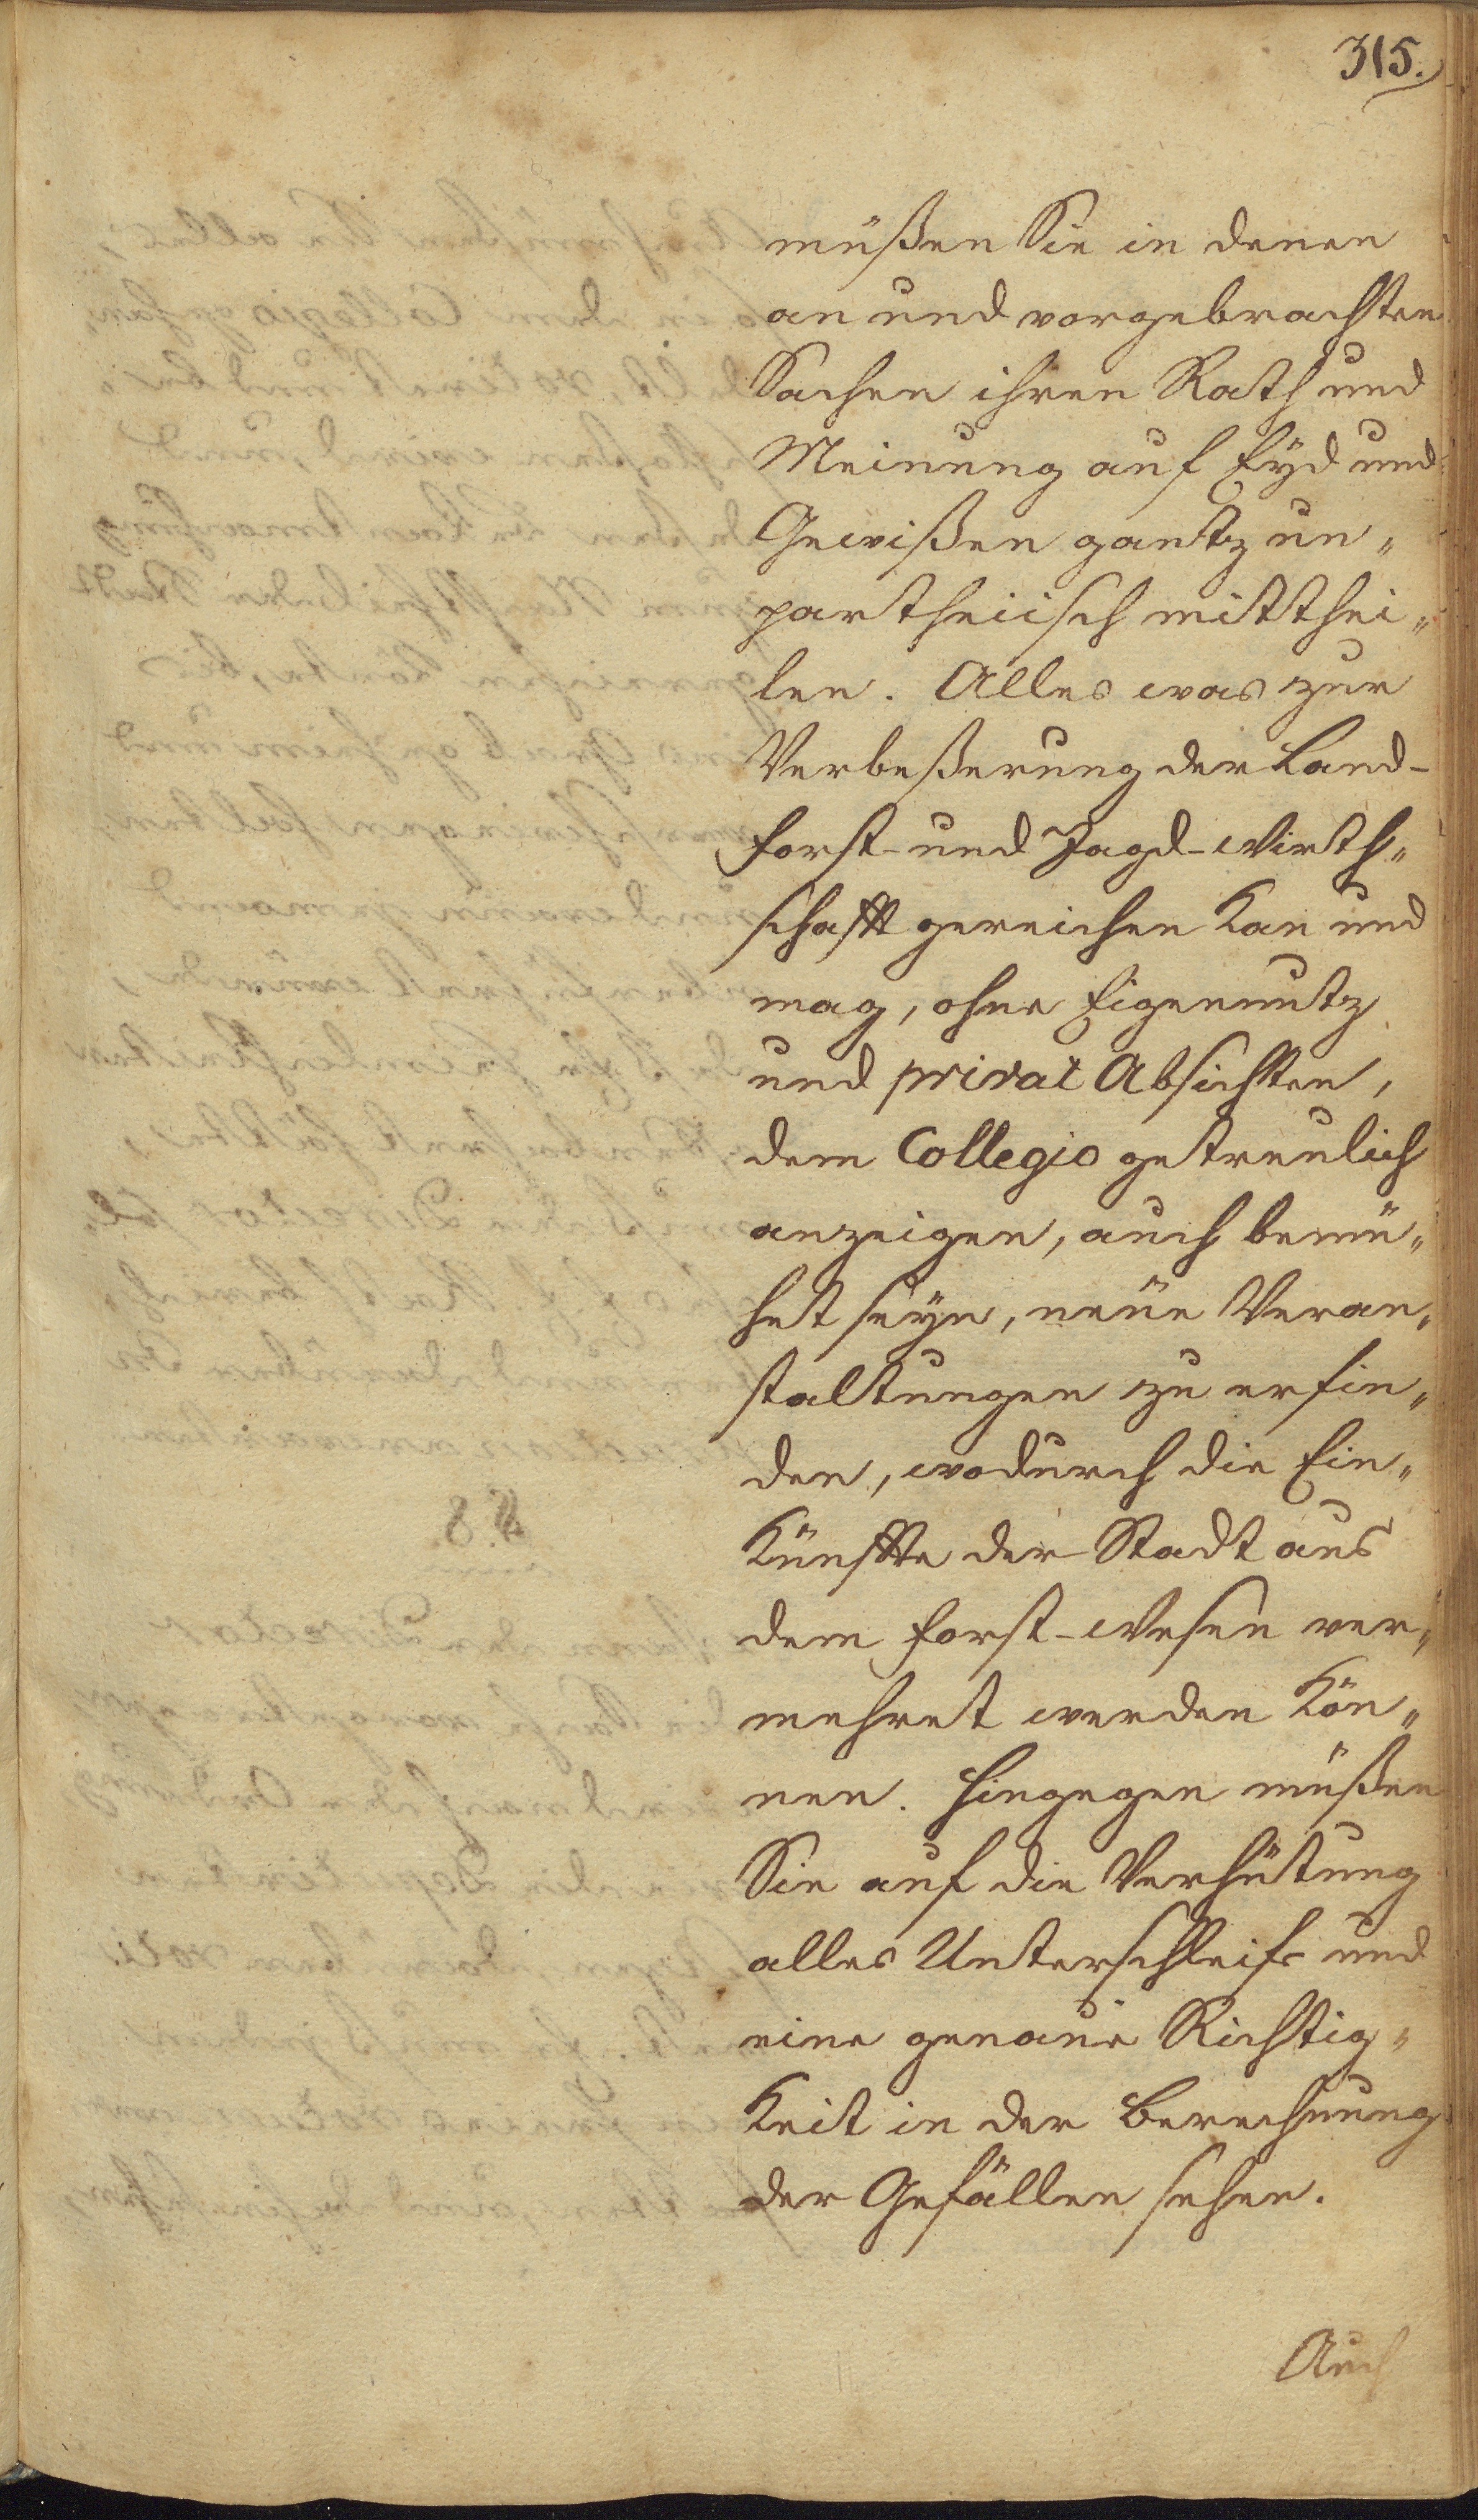 315.
müßen Sie in denen
an und vorgebrachten
Sachen ihren Rath und
Meinung auf Eyd und
Gewißen gantz un„
partheiisch mitthei„
len. Alles was zur
Verbeßerung der Land-
Forst- und Jagd-Wirth„
schafft gereichen kan und
mag, ohne Eigennutz
und privat Absichten,
dem Collegio getreulich
anzeigen, auch bemü„
het seÿn, neüe Veran„
staltungen zu erfin„
den, wodurch die Ein„
Künffte der Stadt aus
dem Forst-Wesen ver„
mehret werden Kön„
nen. Hingegen müßen
Sie auf die Verhütung
alles Unterschleifs und
eine genaue Richtig„
Keit in der Berechnung
der Gefällen sehen.
Auch